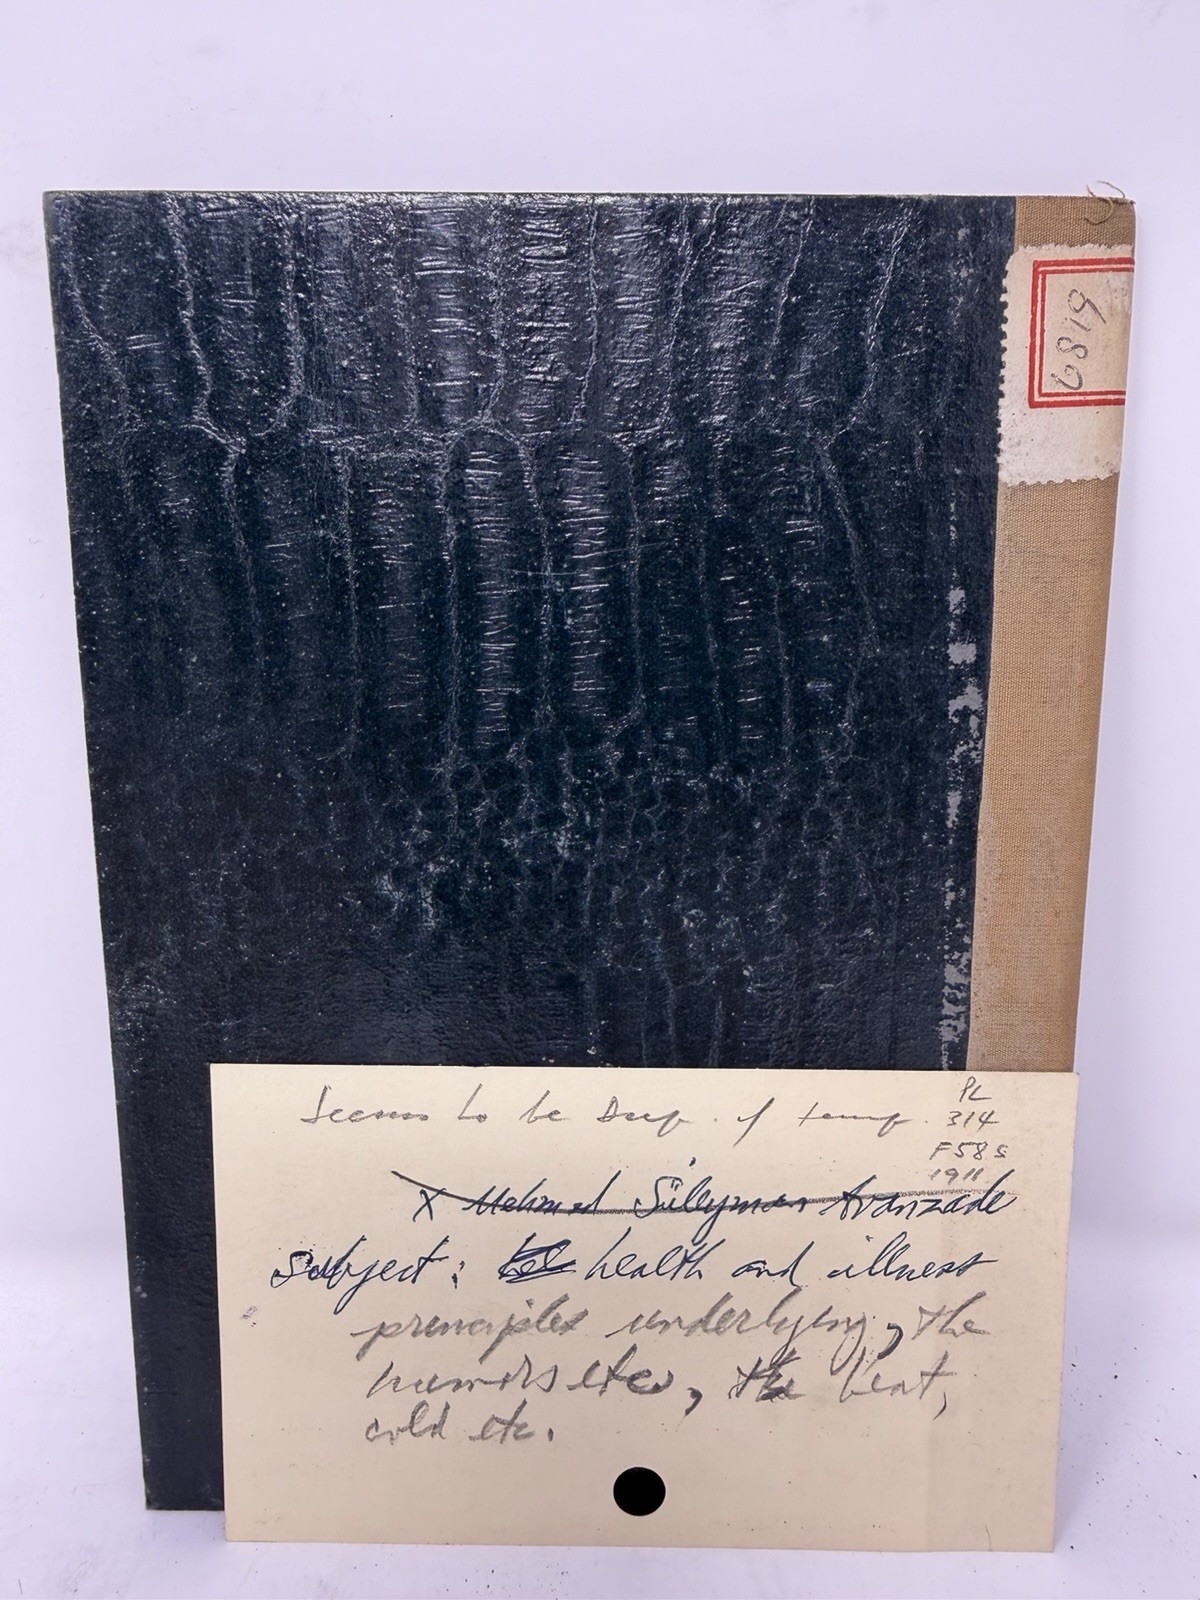 6819
Seems to be Dup. of temp.
PL
314
F58s
1911
X Mehmed Süleyman Avanzade
Subject: health and illness
principles underlying, the
humors etc, the heat,
cold etc.